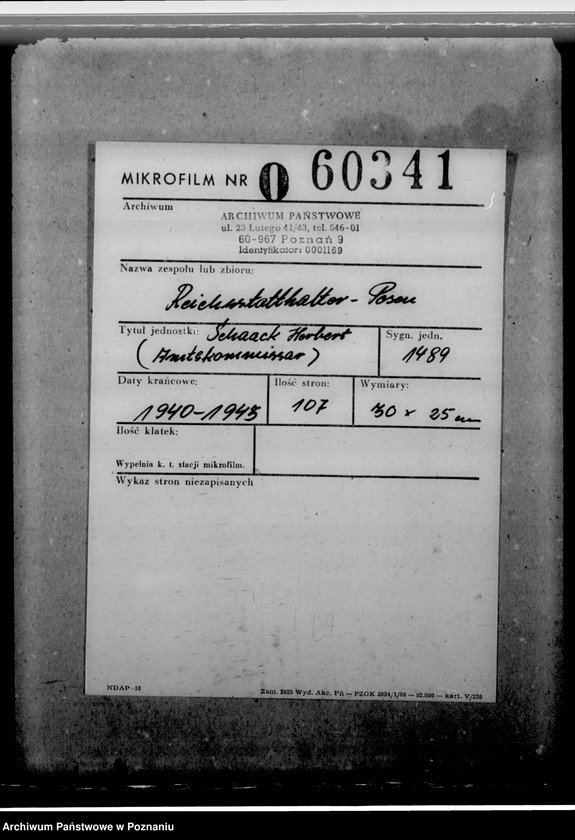 MIKROFILM NR O 60341
Archiwum
ARCHIWUM PAŃSTWOWE
ul. 23 Lutego 41/43, tel. 546-01
60-967 Poznań 9
Identyfikator: 0001169
Nazwa zespołu lub zbioru:
Reichsstatthalter - Posen
Tytuł jednostki: Schaack Herbert
(Amtskommissar)
Sygn. jedn.
1489
Daty krańcowe:
1940-1943
Ilość stron:
107
Wymiary:
30 x 25 cm
Ilość klatek:
Wypełnia k. t. stacji mikrofilm.
Wykaz stron niezapisanych
NDAP-10
Zam. 2625 Wyd. Akc. Pń — PZGK 2834/1/80 — 92.000 — kart. V/220
Archiwum Państwowe w Poznaniu